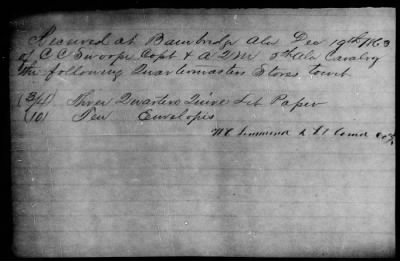 Received at Bainbridge Ala Dec 19th 1863
of C C Swoope Capt & AQM 5th Ala Cavalry
the following Quartermasters Stores towit
(3/4) Three Quarters Quire Let Paper
(10) Ten Envelopes
Lt Comd Co